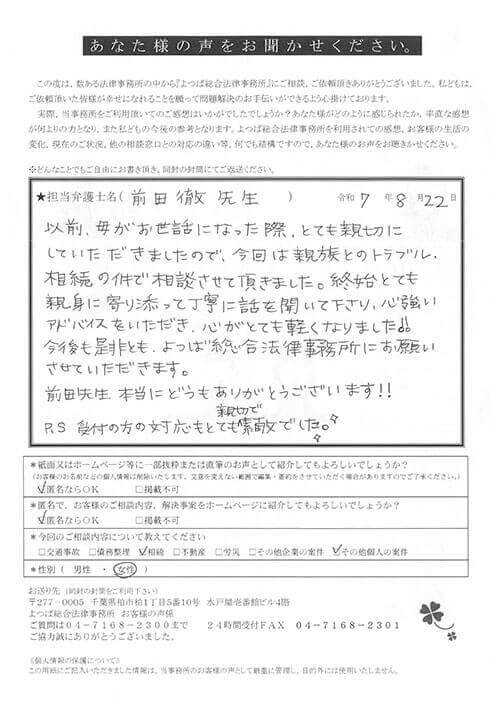 あなた様の声をお聞かせください。
この度は、数ある法律事務所の中から『よつば総合法律事務所』にご相談、ご依頼頂きありがとうございました。私どもは、
ご依頼頂いた皆様が幸せになれることを願って問題解決のお手伝いができるよう心掛けております。
実際、当事務所をご利用いただいてのご感想はいかがでしたでしょうか?あなた様がどのように感じられたか、率直な感想
が何よりの力となり、また私どもの今後の参考となります。よつば総合法律事務所を利用されての感想、お客様の生活の
変化、現在のご状況、他の相談窓口との対応の違い等、何でも結構ですので、あなた様の声をお聴きかせください。
※どんなことでもご自由にお書き頂き、同封の封筒にてご返送ください。
★担当弁護士名( 前田徹先生 ) 令和 7 年 8 月 22 日
以前、母がお世話になった際、とても親切に
していただきましたので、今回は親族とのトラブル、
相続の件で相談させて頂きました。終始とても
親身に寄り添って丁寧に話を聞いて下さり、心強い
アドバイスをいただき、心がとても軽くなりました!!
今後も是非とも、よつば総合法律事務所にお願い
させていただきます。
前田先生本当にどうもありがとうございます!!
P.S 受付の方の対応もとても親切で素敵でした。
*紙面又はホームページ等に一部抜粋または直筆のお声として紹介してもよろしいでしょうか?
(お客様のお名前などの個人情報は削除いたします。文意を変えない範囲で編集・要約をさせていただく場合がありますのでご了承ください。)
☑匿名ならOK □掲載不可
*匿名で、お客様のご相談内容、解決事案をホームページに紹介してもよろしいでしょうか?
☑匿名ならOK □掲載不可
*今回のご相談内容について教えてください
□交通事故 □債務整理 ☑相続 □不動産 □労災 □その他企業の案件 ☑その他個人の案件
*性別 ( 男性 ・ 女性 )
お送り先(同封の封筒をご利用下さい)
〒277-0005 千葉県柏市柏1丁目5番10号 水戸屋壱番館ビル4階
よつば総合法律事務所 お客様の声係
ご質問は04-7168-2300まで 24時間受付FAX 04-7168-2301
ご協力誠にありがとうございました。
《個人情報の保護について》
この用紙にご記入いただきました情報は、当事務所のお客様の声として厳重に管理し、目的外には使用いたしません。